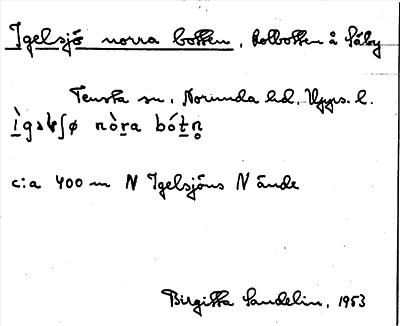 Igelsjö norra botten, Kolbotten å Säby
Tensta sn, Norunda hd, Upps. l.
ìgəlʃø nòra bótn̥
c:a 400 m N Igelsjöns N ände
Birgitta Sandelin, 1953